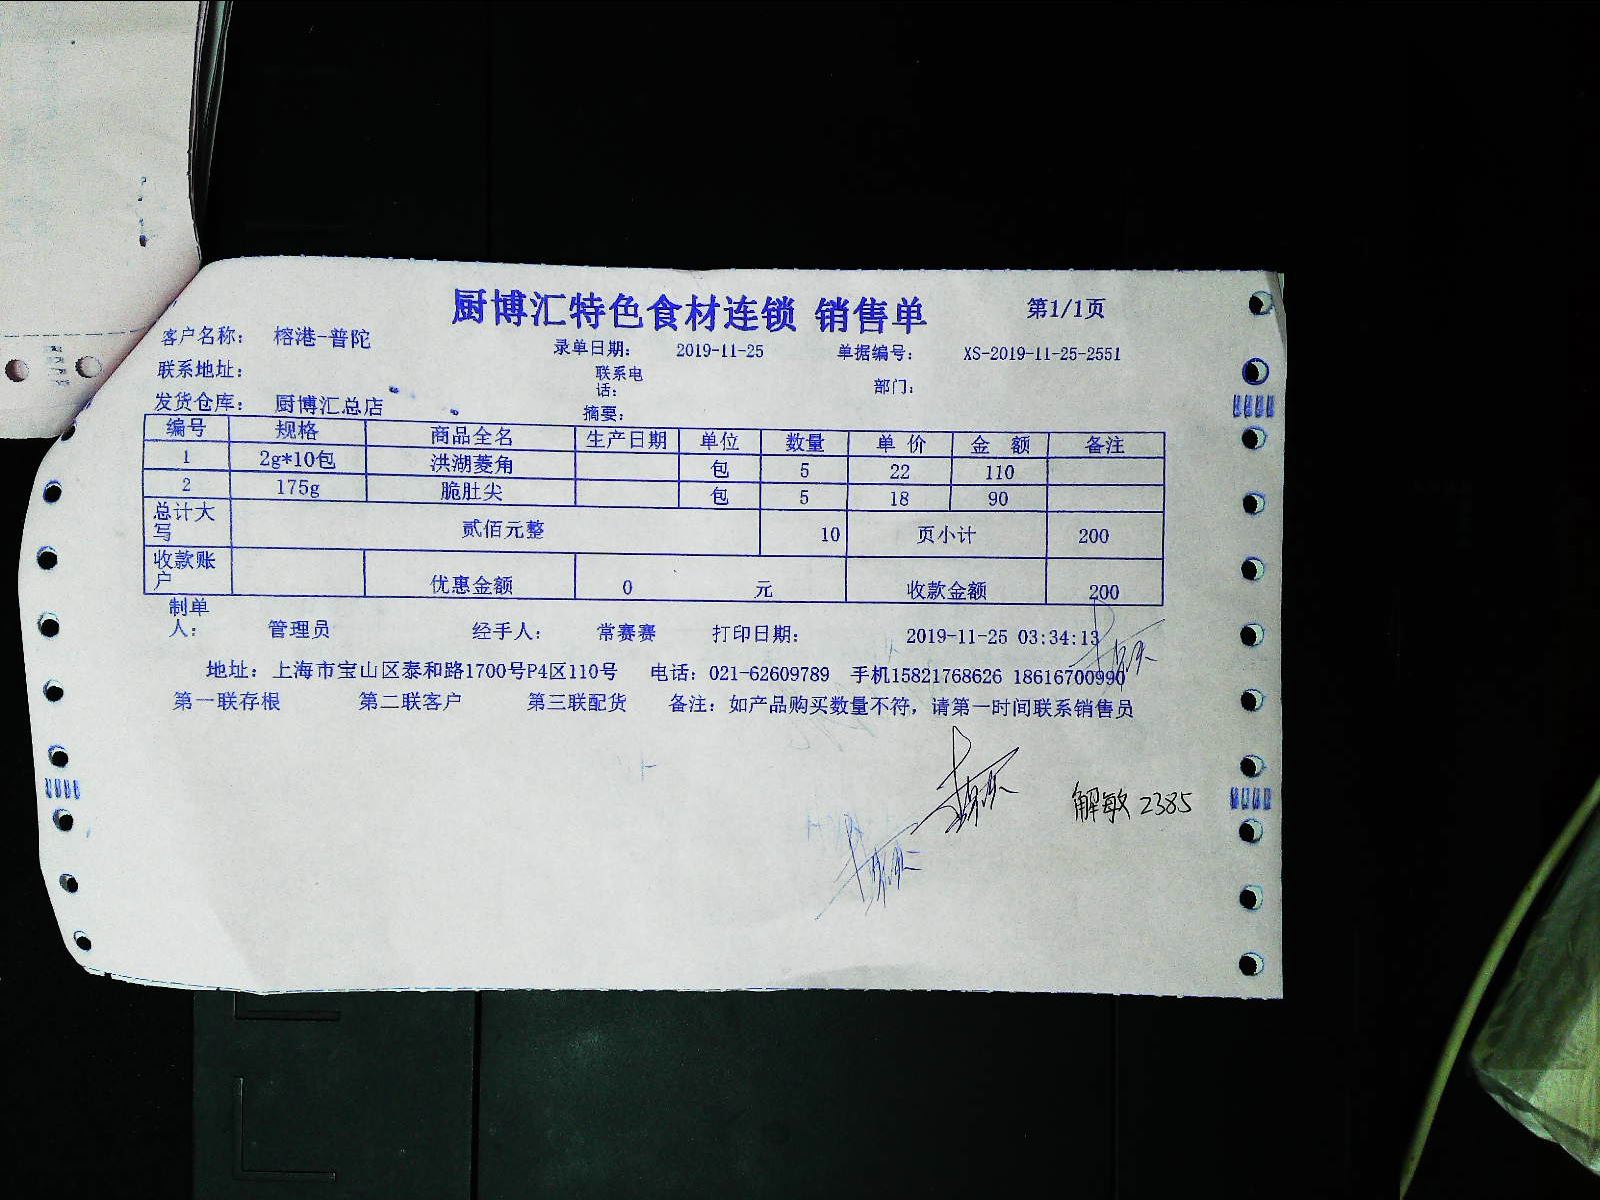 厨博汇特色食材连锁 销售单 第1/1页
客户名称: 榕港-普陀 录单日期: 2019-11-25 单据编号: XS-2019-11-25-2551
联系地址: 联系电话: 部门:
发货仓库: 厨博汇总店 摘要:
编号 规格 商品全名 生产日期 单位 数量 单 价 金 额 备注
1 2g*10包 洪湖菱角 包 5 22 110
2 175g 脆肚尖 包 5 18 90
总计大写 贰佰元整 10 页小计 200
收款账户 优惠金额 0 元 收款金额 200
制单人: 管理员 经手人: 常赛赛 打印日期: 2019-11-25 03:34:13
地址: 上海市宝山区泰和路1700号P4区110号 电话: 021-62609789 手机15821768626 18616700990
第一联存根 第二联客户 第三联配货 备注: 如产品购买数量不符, 请第一时间联系销售员
解敏 2385